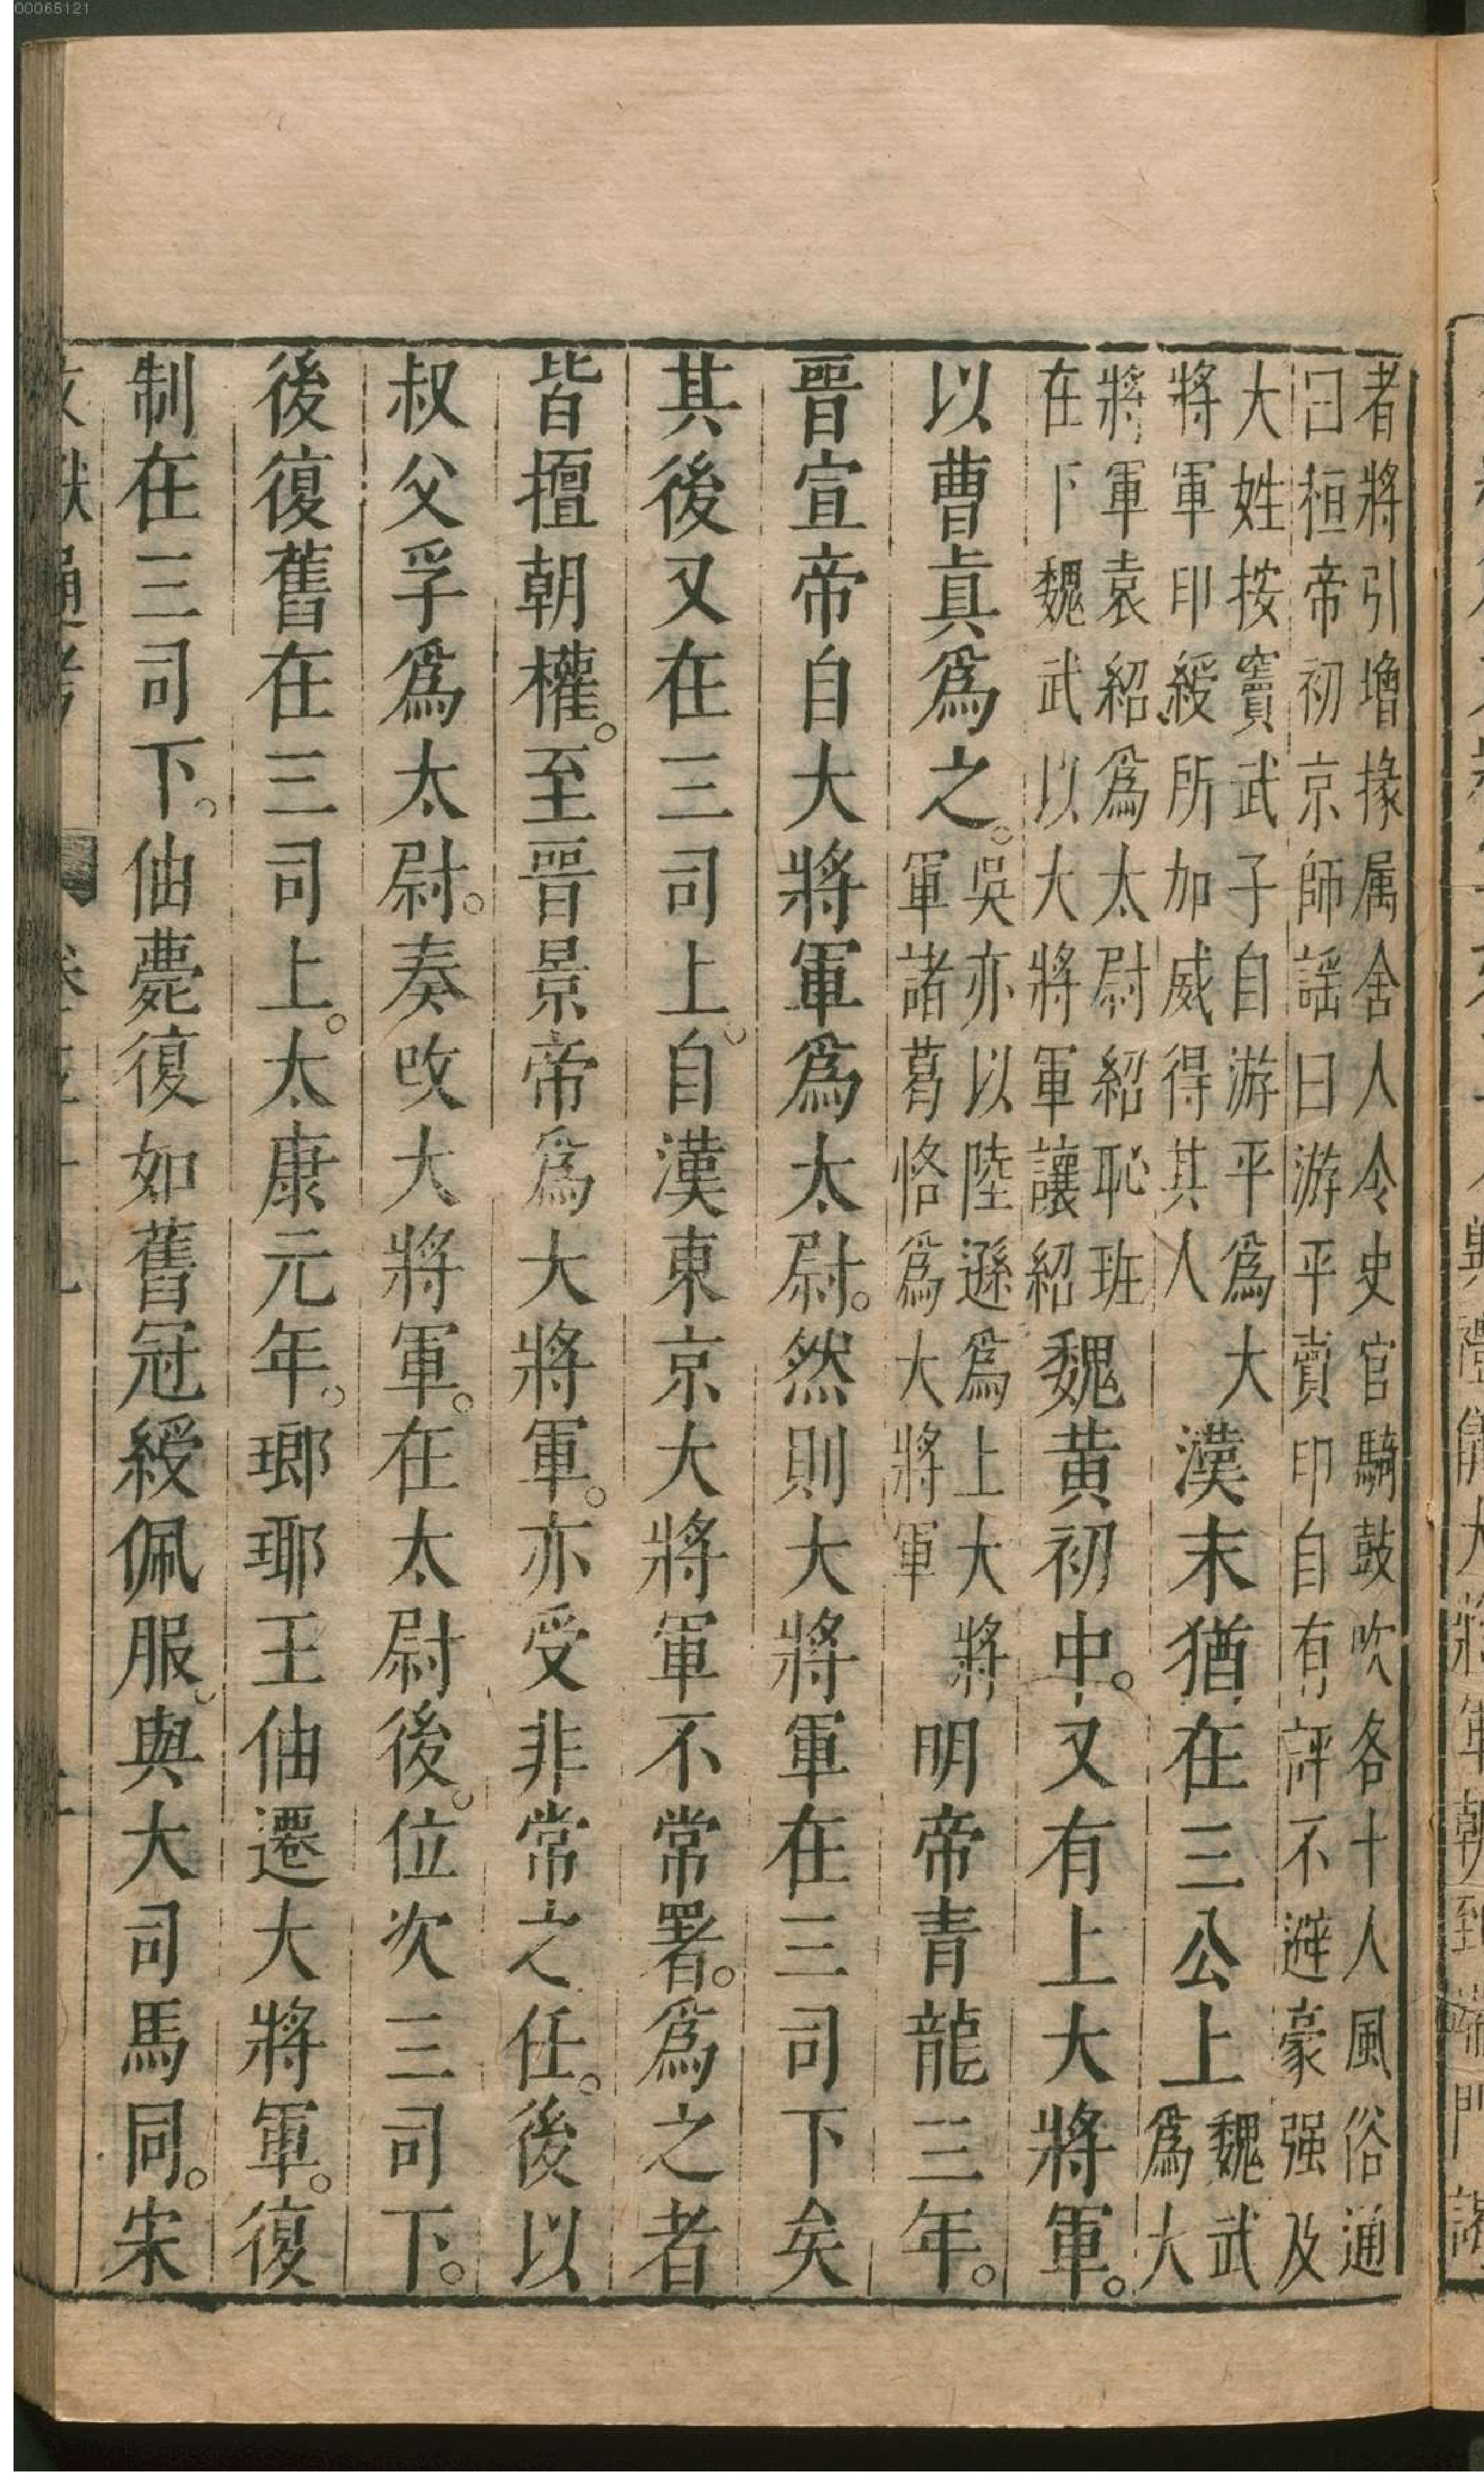 00065121
者將引增掾属舍人令史官騎鼓吹各十人風俗通
曰桓帝初京師謡曰游平賣印自有評不避豪强及
大姓按竇武子自游平爲大
將軍印綬所加咸得其人
漢末猶在三公上
魏武
爲大
將軍袁紹爲太尉紹恥班
在下魏武以大將軍讓紹
魏黄初中。又有上大將軍。
以曹眞爲之。
吳亦以陸遜爲上大將
軍諸葛恪爲大將軍
明帝青龍三年。
晋宣帝自大將軍爲太尉。然則大將軍在三司下矣
其後又在三司上。自漢東京大將軍不常署。爲之者
皆擅朝權。至晋景帝爲大將軍。亦受非常之任。後以
叔父孚爲太尉。奏改大將軍。在太尉後。位次三司下。
後復舊在三司上。太康元年。瑯琊王伷遷大將軍。復
制在三司下。伷薨復如舊冠綬佩服。與大司馬同。宋